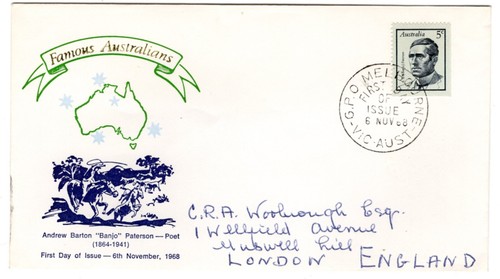 Famous Australians
Australia 5c
G.P.O MELBOURNE
FIRST DAY
OF
ISSUE
6 NOV 68
VIC-AUST
Andrew Barton "Banjo" Paterson — Poet
(1864-1941)
First Day of Issue — 6th November, 1968
C.R.A. Woolnough Esq.
1 Wellfield Avenue
Muswell Hill
LONDON ENGLAND